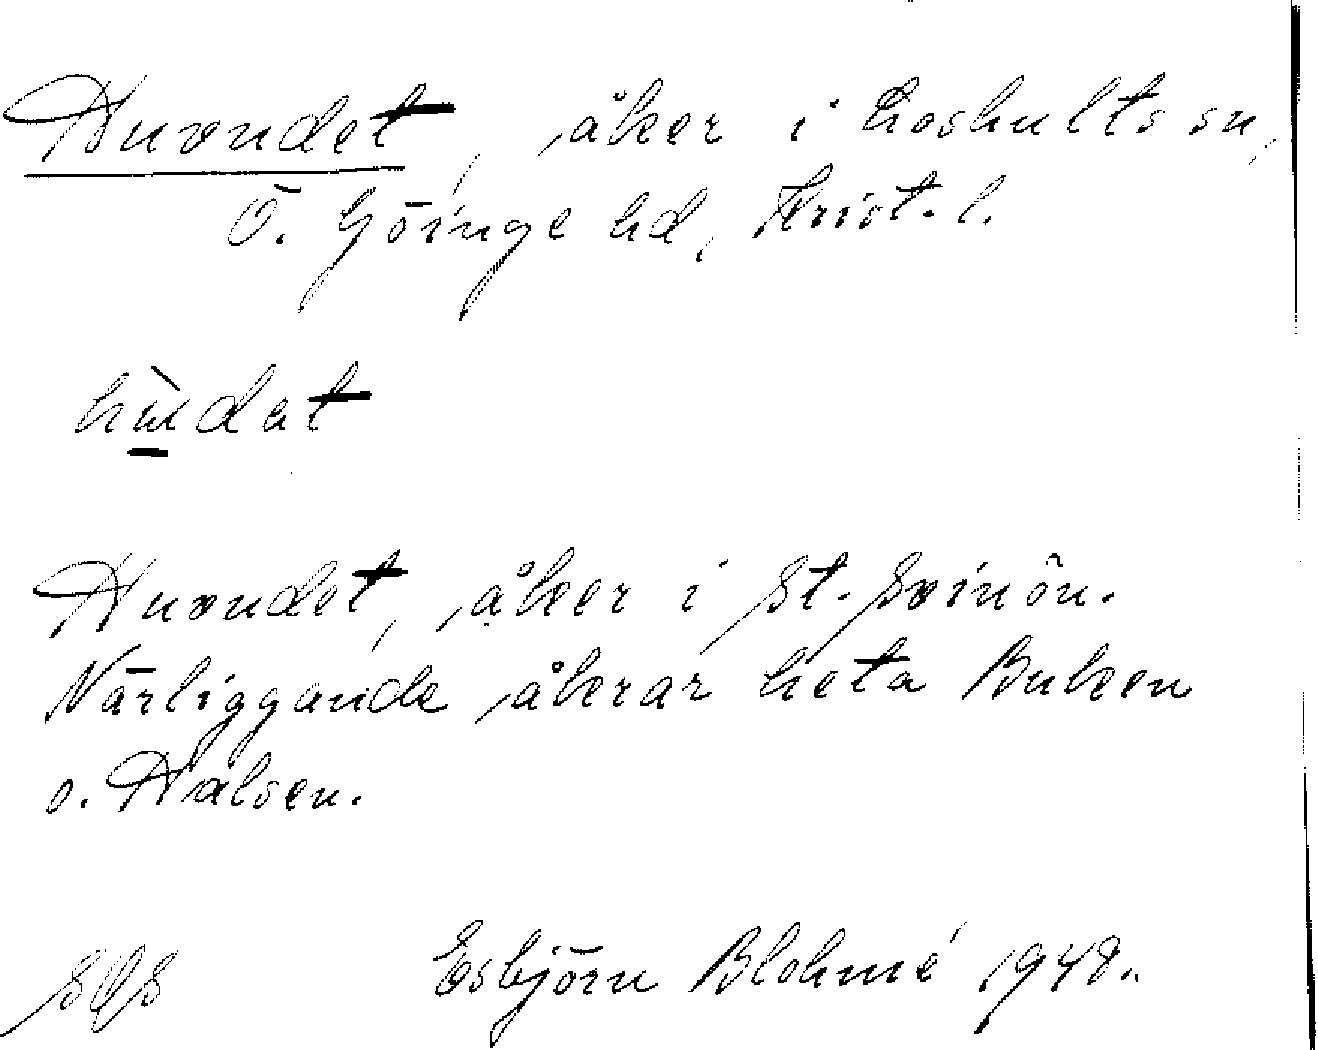 Huvudet, åker i Loshults sn,
Ö. Göinge hd, Krist. l.
Huvudet, åker i St. Svinön.
Närliggande åkrar heta Buken
o. Halsen.
Esbjörn Blohmé 1948.